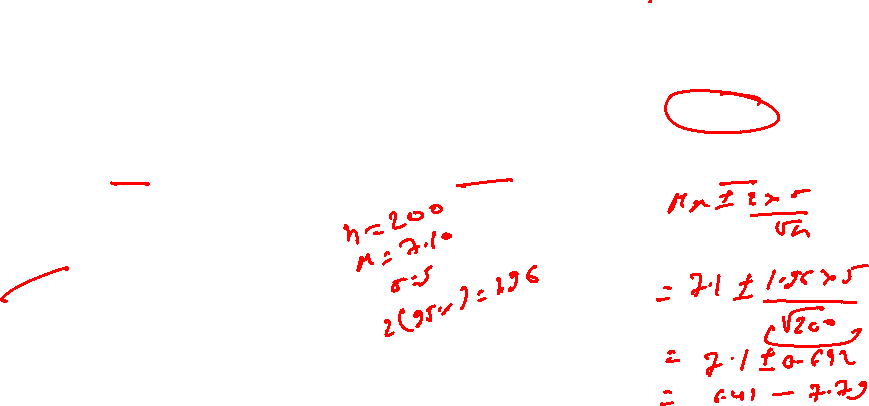 n = 200
μ = 7.10
σ = 5
z(95%) = 1.96
μx ± z × σ / √n
= 7.1 ± 1.96 × 5 / √200
= 7.1 ± 0.692
= 6.41 — 7.79